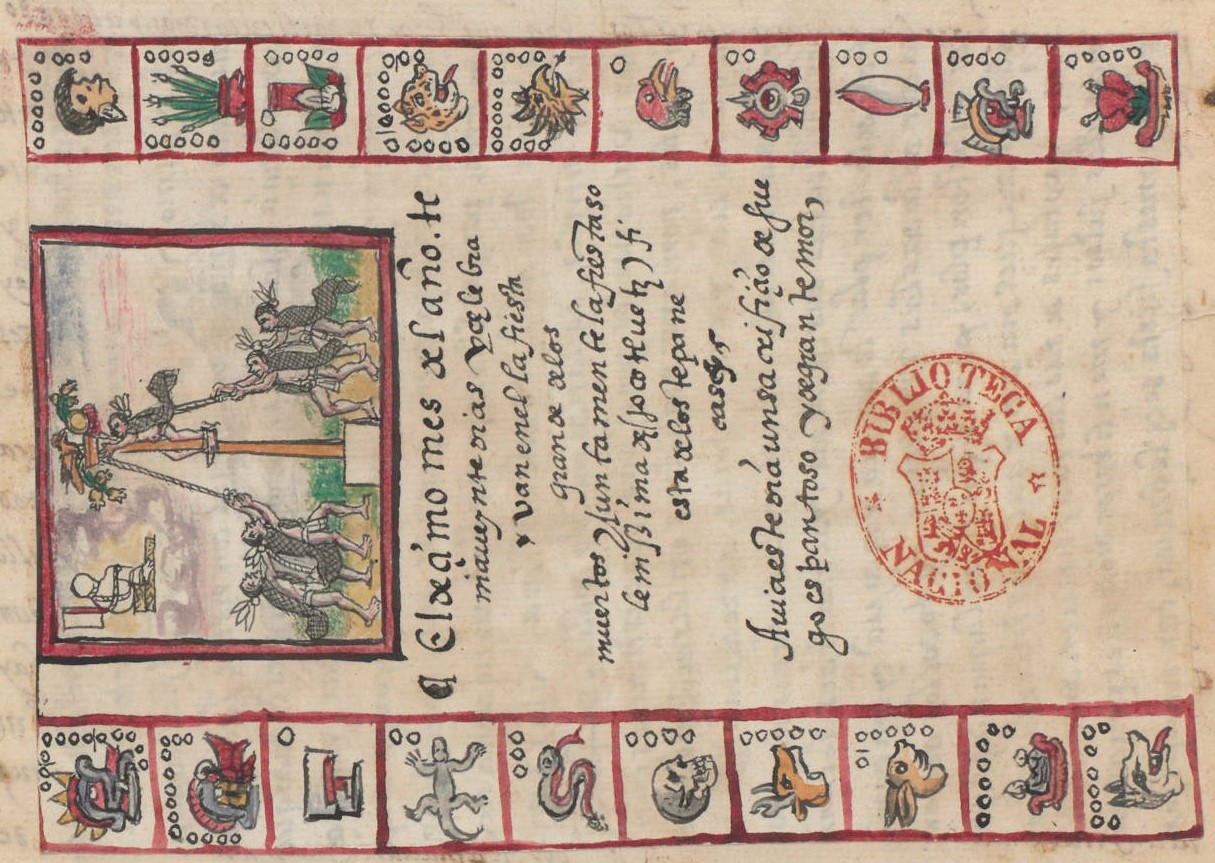 ¶ El deçimo mes del año. te
nia ueynte dias y çelebra
van en el la fiesta
grande de los
muertos y juntamente la fiesta so
lemissima del (xocotlhuetz) fi
esta de los tepane
cas
Auia este dia un sacrifiçio de fue
go espantoso y de gran temor,
BIBLIOTECA
NACIONAL